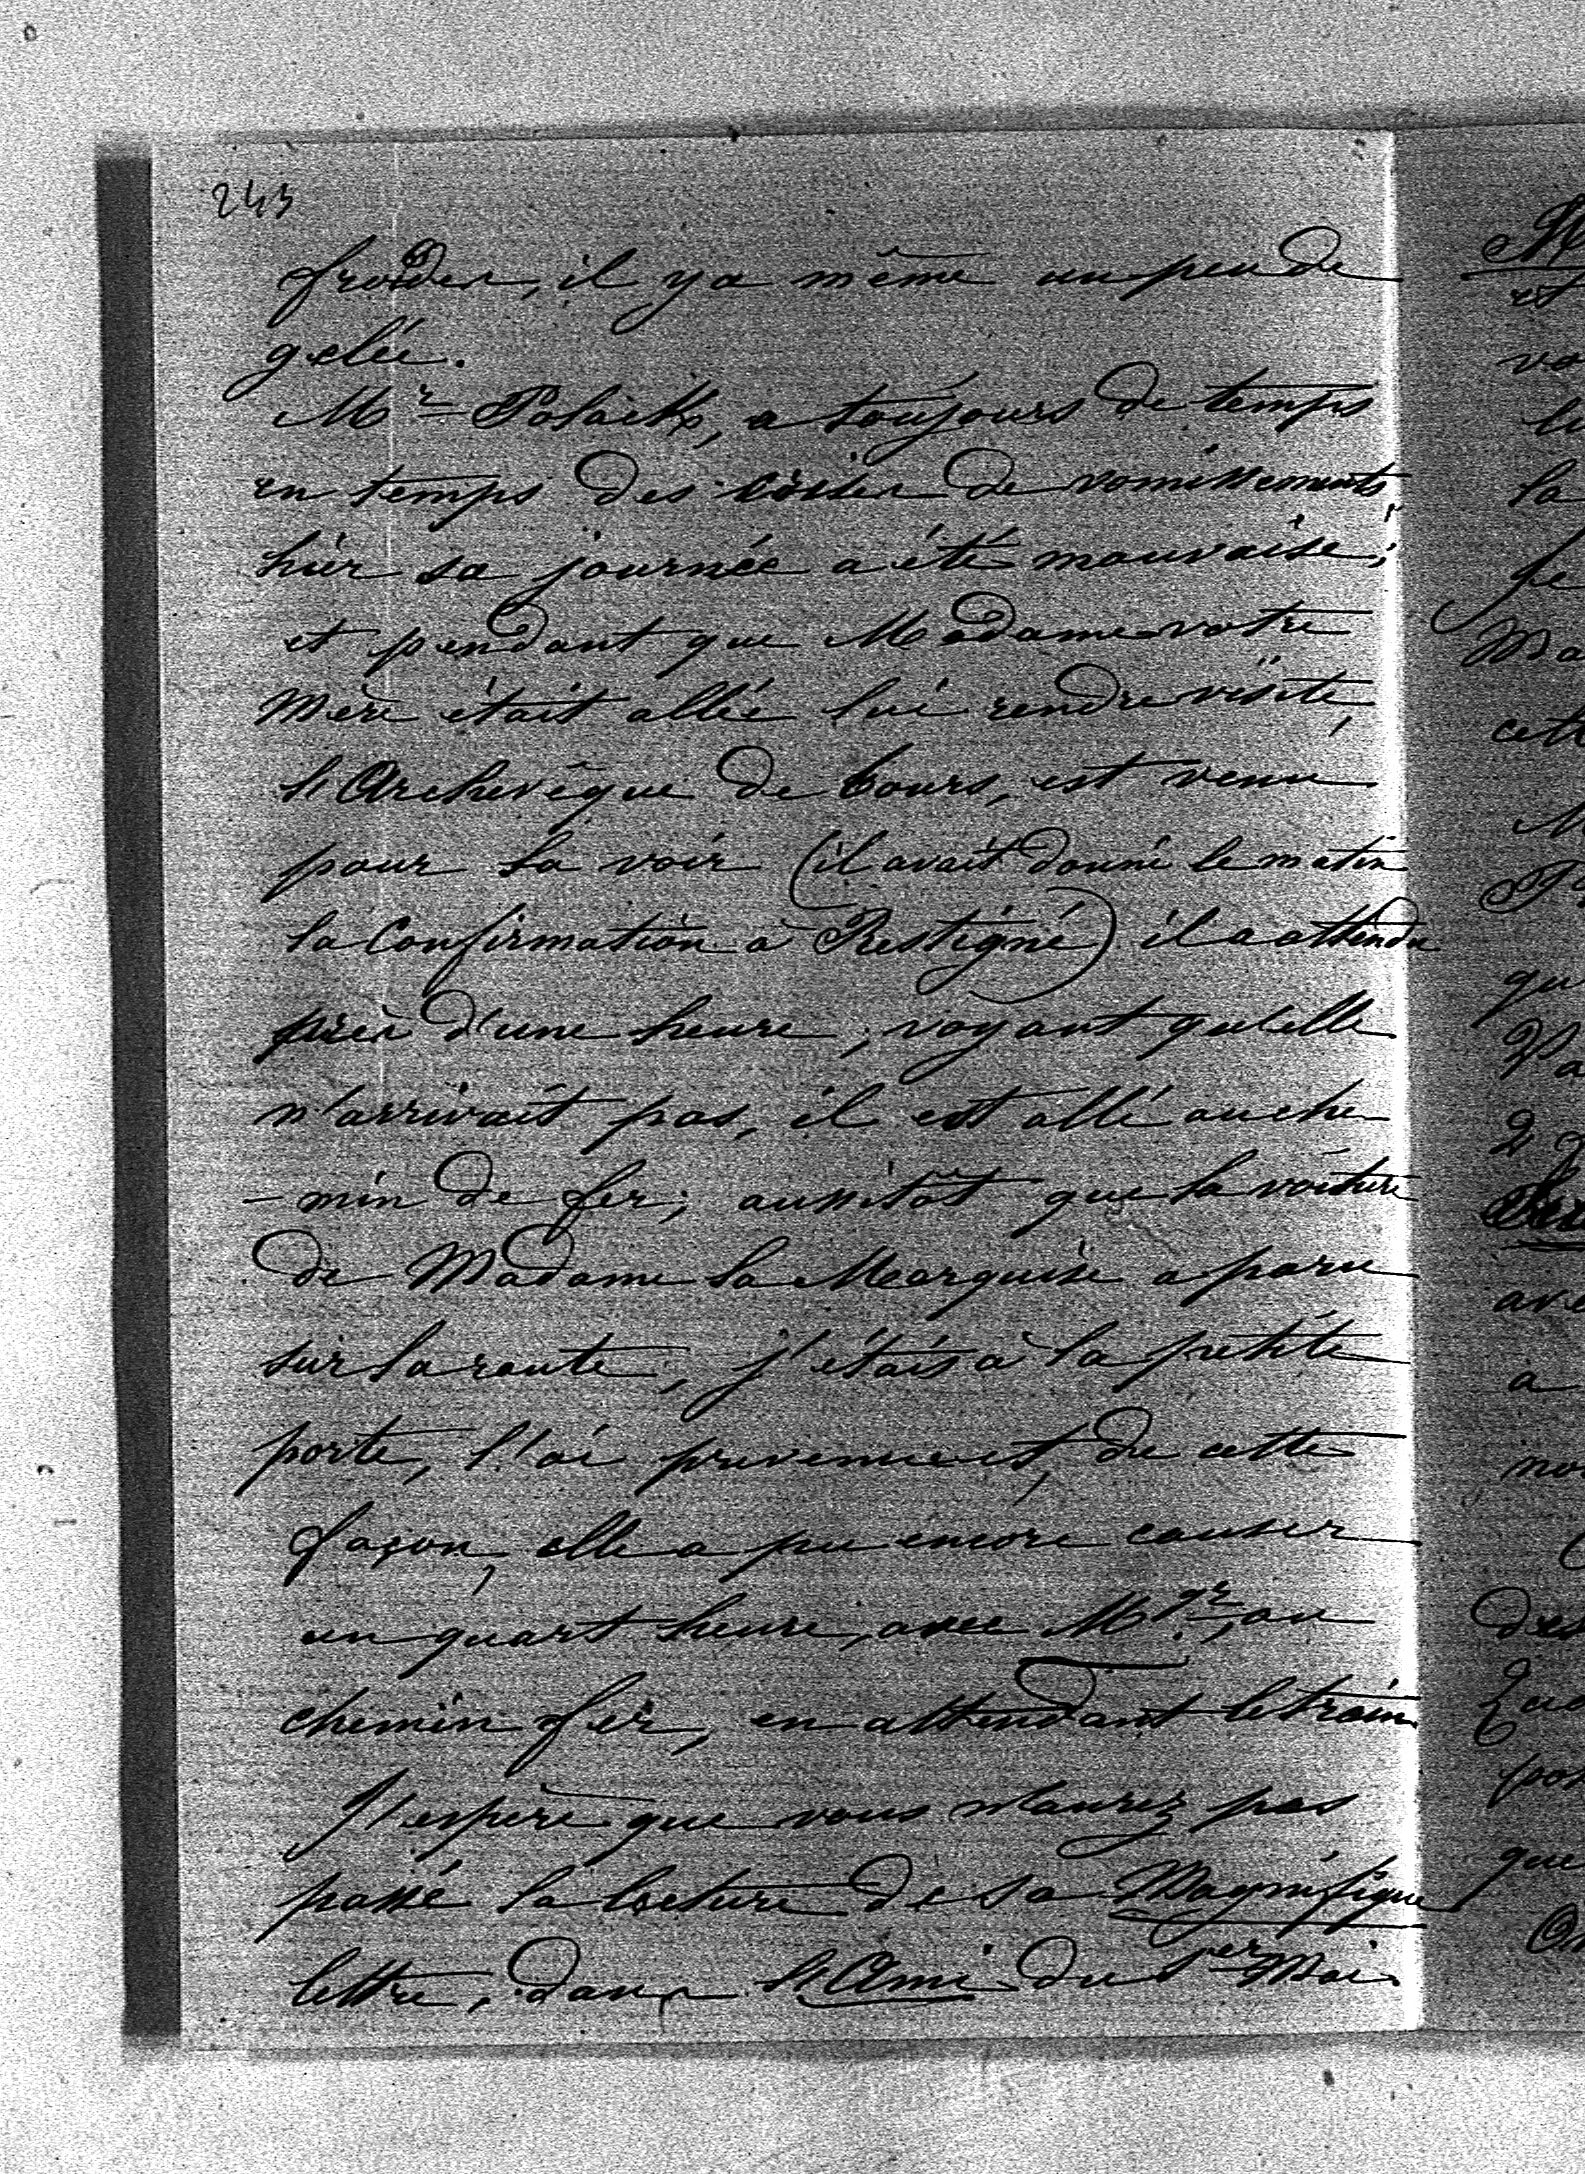 243
froides, il y a même un peu de
gelée.
Mr a toujours de temps
en temps des crises de vomissements
hier sa journée a été mauvaise;
et pendant que Madame votre
Mère était allée lui rendre visite,
l'Archevêque de Tours, est venu
pour la voir (il avait donné le matin
la Confirmation à Restigné) il a attendu
près d'une heure, voyant qu'elle
n'arrivait pas, il est allé au che-
-min de fer; aussitôt que la voiture
de Madame la Marquise a paru
sur la route, j'étais à la petite
porte, l'ai prévenue et, de cette
façon, elle a pu encore causer
un quart heure, avec Mgr, au
chemin fer, en attendant le train.
J'espère que vous n'aurez pas
passé la lecture de sa Magnifique
lettre, dans l'Ami du 1er Mai